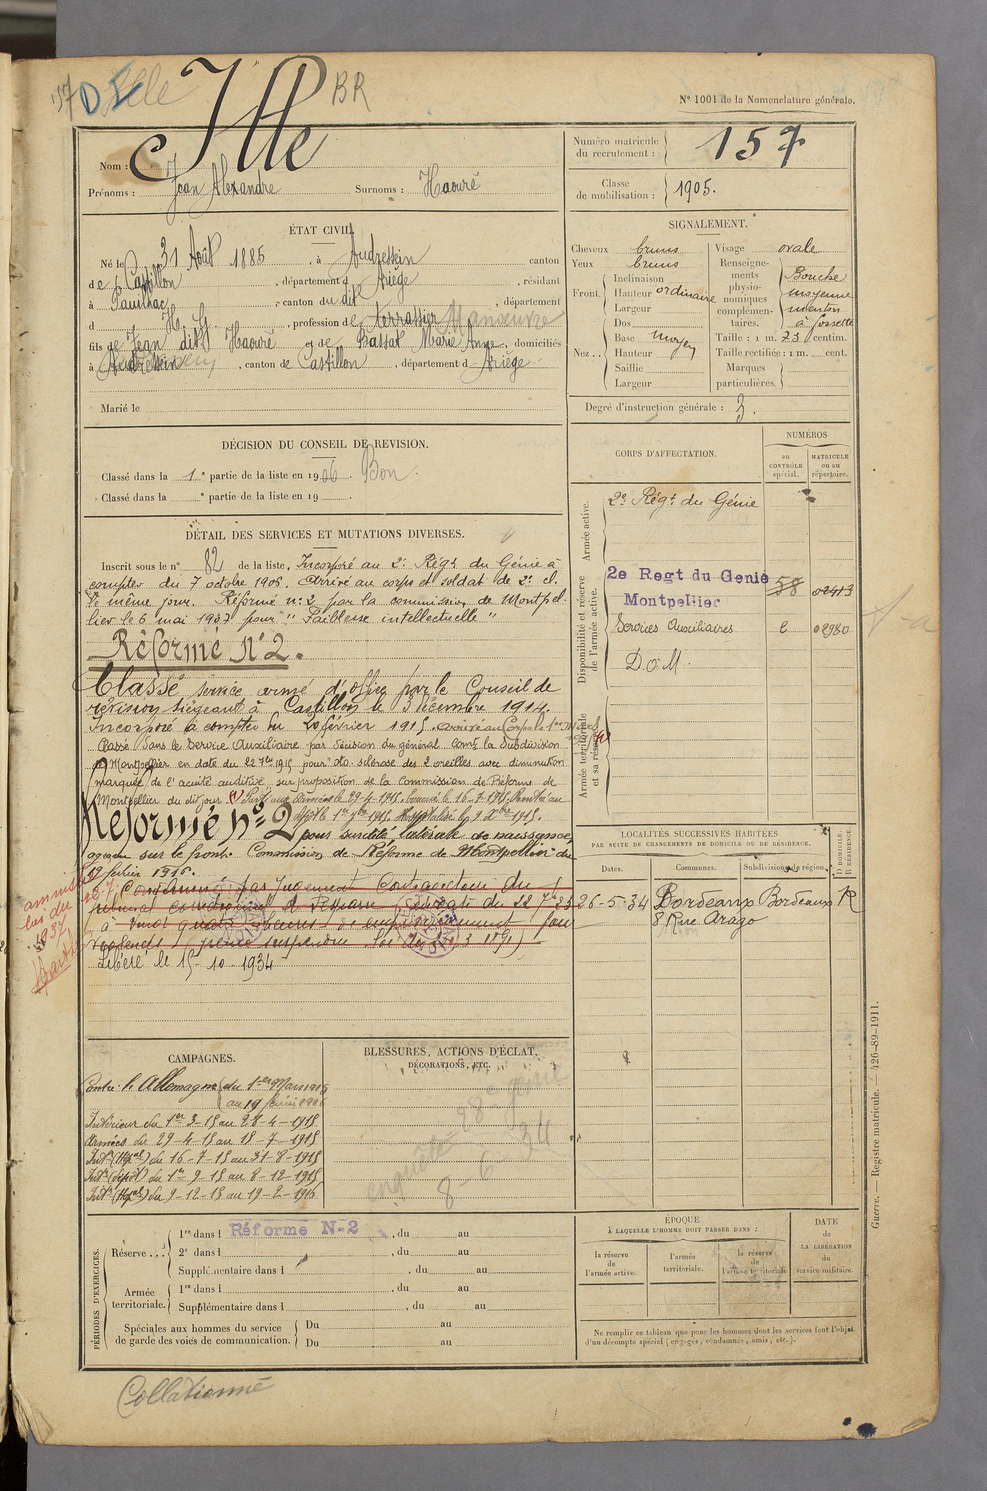 157 DI BR
N° 1001 de la Nomenclature générale.
Nom : Ille
Prénoms : Jean Alexandre Surnoms : Haouré
Numéro matricule du recrutement : 157
Classe de mobilisation : 1905.
ÉTAT CIVIL
Né le 31 Août 1885, à Audressein canton
de Castillon, département d Ariège, résidant
à Pauilhac, canton du dit, département
d H. G., profession de terrassier Manœuvre
fils de Jean dit Haouré et de Bassat Marie Anne, domiciliés
à Audressein, canton de Castillon, département d Ariège
Marié le
SIGNALEMENT.
Cheveux bruns
Yeux bruns
Front. Inclinaison
Hauteur ordinaire
Largeur
Nez Dos
Base moyen
Hauteur
Saillie
Largeur
Visage ovale
Renseignements physionomiques complémentaires. Bouche moyenne menton à fossette
Taille : 1 m. 73 centim.
Taille rectifiée : 1 m. cent.
Marques particulières.
Degré d'instruction générale : 3.
DÉCISION DU CONSEIL DE REVISION.
Classé dans la 1e partie de la liste en 1906 Bon.
Classé dans la e partie de la liste en 19
DÉTAIL DES SERVICES ET MUTATIONS DIVERSES.
Inscrit sous le n° 82 de la liste. Incorporé au 2e Régt du Génie à
compter du 7 octobre 1906. Arrivé au corps et soldat de 2e cl.
le même jour. Réformé n° 2 par la commission de Montpel-
lier le 6 mai 1907 pour "Faiblesse intellectuelle"
Réformé N°2.
Classé service armé d'office par le Conseil de
révision siégeant à Castillon le 3 décembre 1914.
Incorporé à compter du 20 février 1915. Arrivé au Corps le 1er Mars
Classé dans le Service Auxiliaire par décision du général comt la Subdivision
de Montpellier en date du 22 7bre 1915 pour "oto sclérose des 2 oreilles avec diminution
marquée de l'acuité auditive" sur proposition de la Commission de Réforme de
Montpellier du dit jour. Parti aux Armées le 29-4-1915. Evacué le 16-7-1915. Rentré au
dépôt le 1er 7bre 1915. Hospitalisé le 9 Xbre 1915.
Réformé n° 2 pour surdité bilatérale de naissance,
aggravée sur le front. Commission de Réforme de Montpellier du
19 février 1916.
Condamné par Jugement Contradictoire du
tribunal correctionnel de du 22 7bre 23
à vingt quatre heures d'emprisonnement pour
(peine suspendue loi du 26-3 1891)
Libéré le 15-10-1934
amnistié
loi du
1937
CORPS D'AFFECTATION.
NUMÉROS
au CONTRÔLE spécial.
MATRICULE ou au répertoire.
Armée active.
2e Régt du Génie
Disponibilité et réserve de l'armée active.
2e Regt du Genie 58 02413
Montpellier
Services Auxiliaires 2 02980
D.O.M.
Armée territoriale et sa réserve.
LOCALITÉS SUCCESSIVES HABITÉES
PAR SUITE DE CHANGEMENTS DE DOMICILE OU DE RÉSIDENCE.
Dates. Communes. Subdivisions de région. D. DOMICILE. R. RÉSIDENCE.
26-5-34 Bordeaux Bordeaux R
8 Rue Arago
CAMPAGNES.
Contre l'Allemagne du 1er Mars 1915
au 19 février 1916
Intérieur du 1er 3-15 au 28-4-1915
Armées du 29-4-15 au 15-7-1915
Intr (Hpal) du 16-7-15 au 31-8-1915
Intr (dépôt) du 1er 9-15 au 8-12-1915
Intr (Hpal) du 9-12-15 au 19-2-1916
BLESSURES, ACTIONS D'ÉCLAT,
DÉCORATIONS, ETC.
enquête 28e génie
8-6-34
PÉRIODES D'EXERCICES.
Réserve... 1re dans l Réformé N-2, du au
2e dans l, du au
Supplémentaire dans l, du au
Armée territoriale. 1re dans l, du au
Supplémentaire dans l, du au
Spéciales aux hommes du service de garde des voies de communication. Du au
Du au
ÉPOQUE
À LAQUELLE L'HOMME DOIT PASSER DANS :
la réserve de l'armée active.
l'armée territoriale.
la réserve de l'armée territoriale
DATE DE LA LIBÉRATION du service militaire.
Ne remplir ce tableau que pour les hommes dont les services font l'objet
d'un décompte spécial (engagés, condamnés, omis, etc.).
Guerre. — Registre matricule. — 426-89-1911.
Collationné